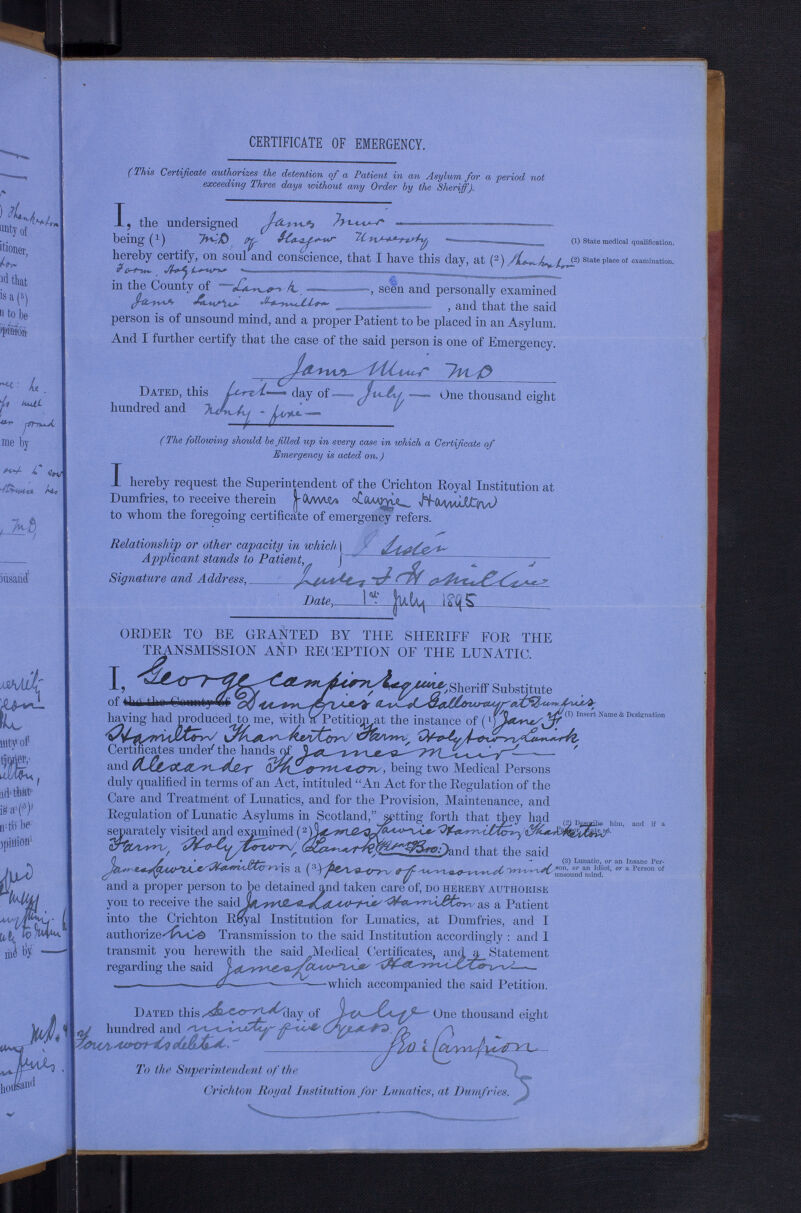 CERTIFICATE OF EMERGENCY.
(This Certificate authorizes the detention of a Patient in an Asylum for a period not
exceeding Three days without any Order by the Sheriff).
I, the undersigned James Muir
being (1) M.D. of Glasgow University
(1) State medical qualification.
hereby certify, on soul and conscience, that I have this day, at (2) Thankerton
(2) State place of examination.
Farm, Holytown
in the County of Lanark, seen and personally examined
James Lawrie Hamilton, and that the said
person is of unsound mind, and a proper Patient to be placed in an Asylum.
And I further certify that the case of the said person is one of Emergency.
James Muir MD
DATED, this first day of July One thousand eight
hundred and Ninety-five
(The following should be filled up in every case in which a Certificate of
Emergency is acted on.)
I hereby request the Superintendent of the Crichton Royal Institution at
Dumfries, to receive therein James Lawrie Hamilton
to whom the foregoing certificate of emergency refers.
Relationship or other capacity in which
Applicant stands to Patient, Sister
Signature and Address, Hamilton
Date, 1st July 1895
ORDER TO BE GRANTED BY THE SHERIFF FOR THE
TRANSMISSION AND RECEPTION OF THE LUNATIC.
I, George Campion Esquire, Sheriff Substitute
of the the County of Dumfries and Galloway at Dumfries
having had produced to me, with a Petition at the instance of (1) Jane F.
(1) Insert Name & Designation
Hamilton Thankerton Farm, Holytown Lanark,
Certificates under the hands of James Muir
and Alexander Thomson, being two Medical Persons
duly qualified in terms of an Act, intituled "An Act for the Regulation of the
Care and Treatment of Lunatics, and for the Provision, Maintenance, and
Regulation of Lunatic Asylums in Scotland," setting forth that they had
(2) Describe him, and if a
separately visited and examined (2) James Lawrie Hamilton, Thankerton
Farm, Holytown, Lanark, and that the said
(3) Lunatic, or an Insane Per-
son, or an Idiot, or a Person of
unsound mind.
James Lawrie Hamilton is a (3) person of unsound mind
and a proper person to be detained and taken care of, DO HEREBY AUTHORISE
you to receive the said James Lawrie Hamilton as a Patient
into the Crichton Royal Institution for Lunatics, at Dumfries, and I
authorize his Transmission to the said Institution accordingly: and I
transmit you herewith the said Medical Certificates, and a Statement
regarding the said James Lawrie Hamilton
which accompanied the said Petition.
DATED this Second day of July One thousand eight
hundred and ninety five years.
Four words deleted.
Geo: Campion
To the Superintendent of the
Crichton Royal Institution for Lunatics, at Dumfries.